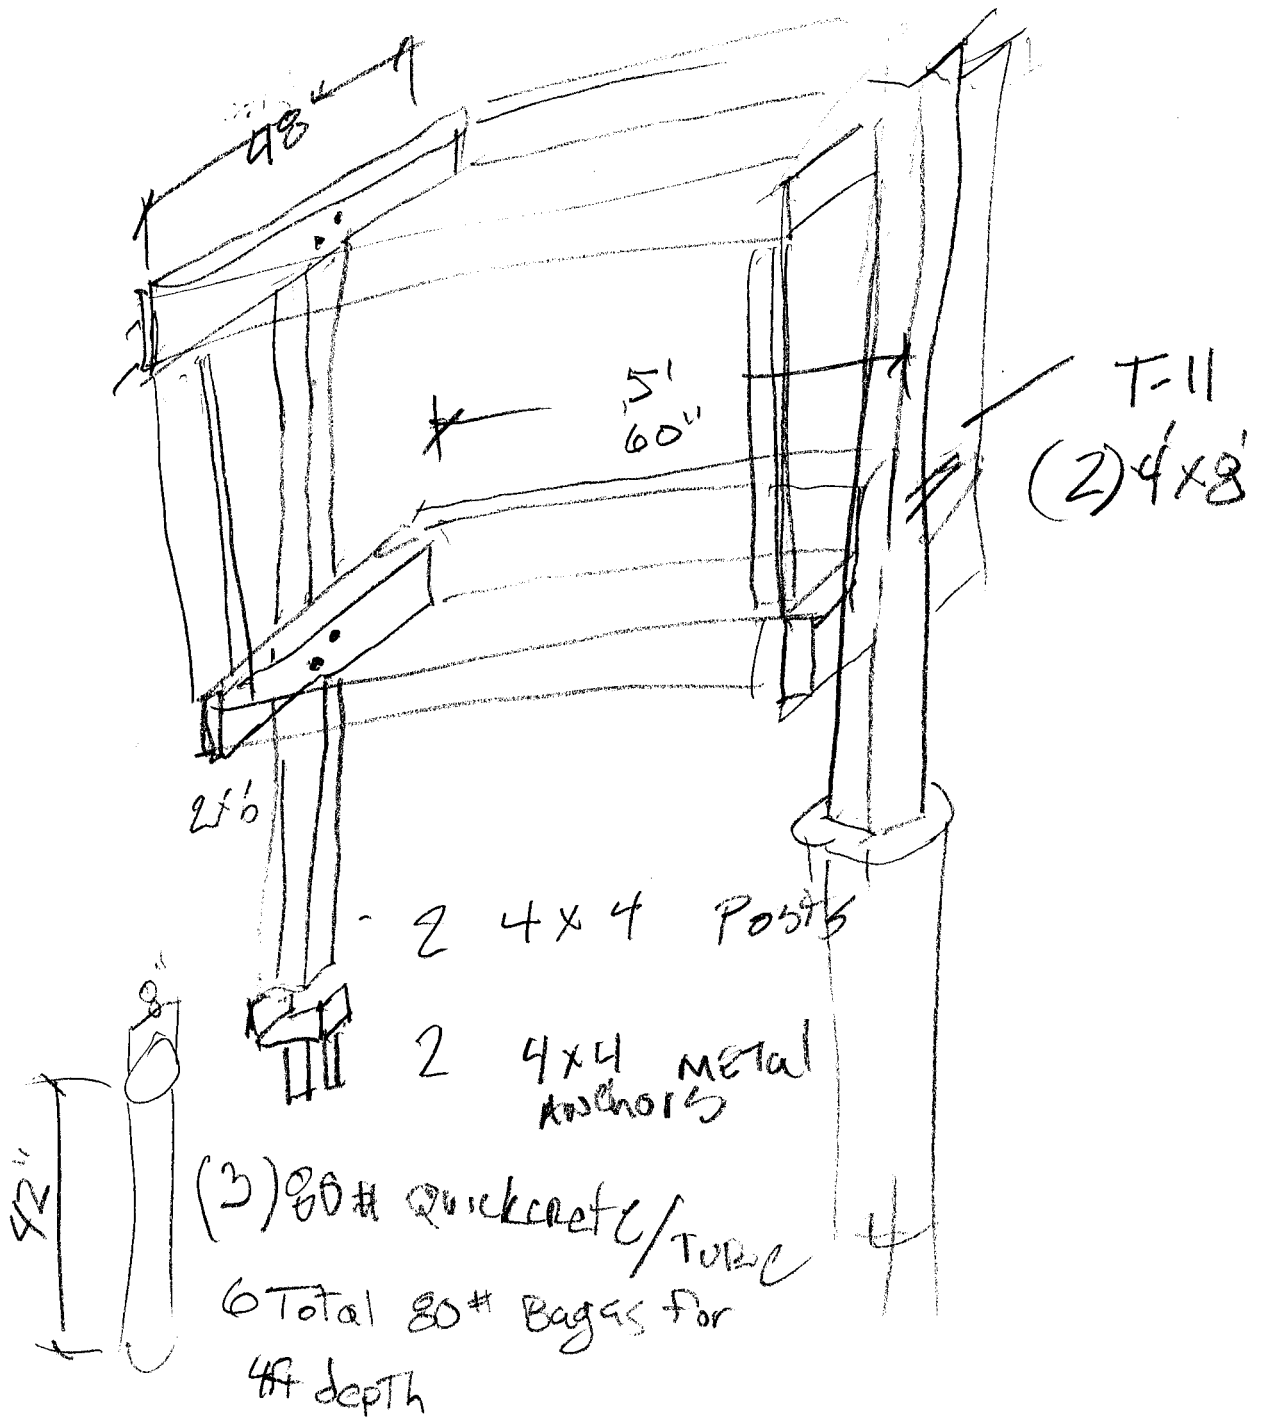 48
5'
60"
T-11
(2) 4'x8'
2x6
2 4x4 Posts
8"
2 4x4 METal
ANchors
42"
(3) 80# Quickcrete/TUBE
6 Total 80# Bags for
4ft depth